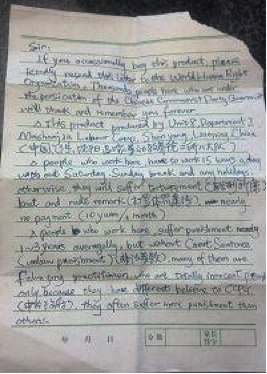 Sir:
If you occasionally buy this product, please
kindly resend this letter to the World Human Right
Organization. Thousands people here who are under
the persicution of the Chinese Communist Party Government
will thank and remember you forever.
This product produced by Unit 8, Department 2,
Mashanjia Labour Camp, Shen Yang, Liaoning, China
(中国,辽宁,沈阳,
people who work here, have to work 15 hours a day
without Saturday, Sunday break and any holidays,
otherwise, they will suffer torturement
beat and rude remark nearly
no payment (10 yuan / month)
people who work here, suffer punishment nearly
1~3 years averagelly, but without Court Sentence
(unlaw punishment) many of them are
Falun gong practitioner, who are totally innocent people
only because they have different believe to CCPG
they often suffer more punishment than
others.
年 月 日